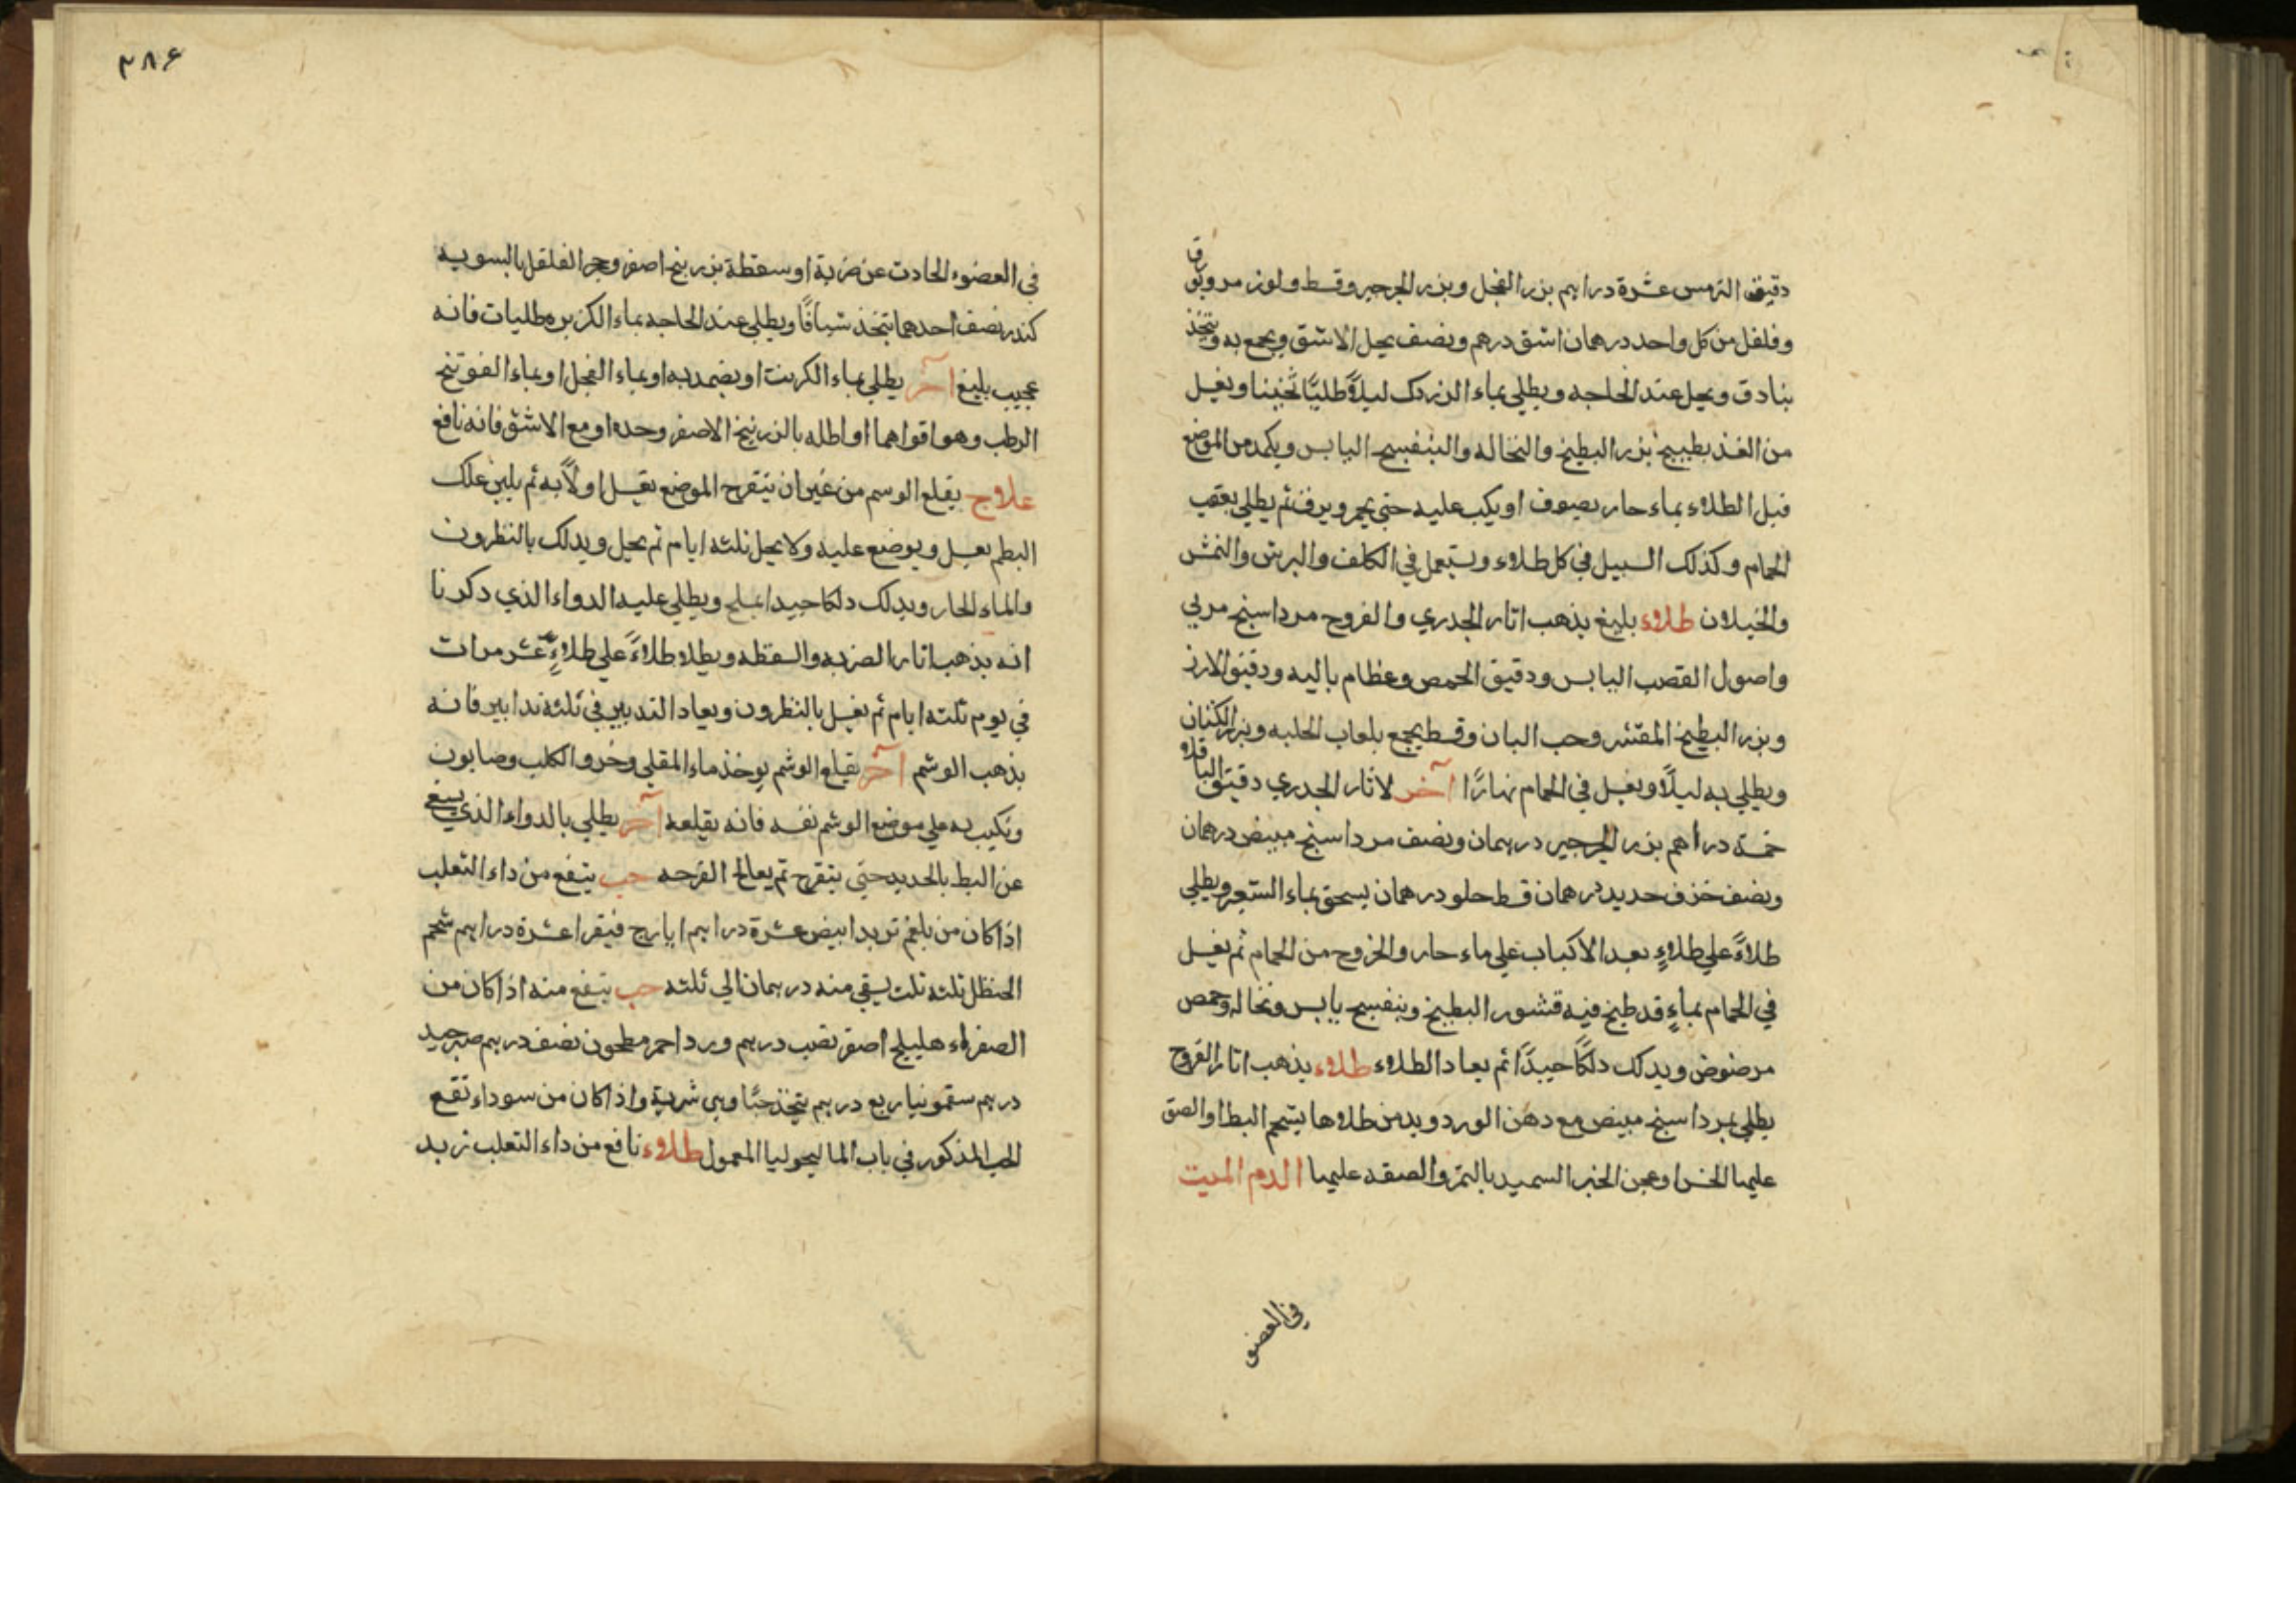 دقيق الترمس عشرة دراهم بزر الفجل وبزر الجرجير وقسط ولوز مر وبورق
وفلفل من كل واحد درهمان اشق درهم ونصف يحل الاشق ويجمع به ويتخذ
بنادق ويحل عند الحاجه ويطلي بماء الزردك ليلاً طليًا ثخينا ويغسل
من الغد بطبيخ بزر البطيخ والنخاله والبنفسج اليابس ويكمد من الموضع
قبل الطلاء بماء حار بصوف او يكب عليه حتي يحمر ويرق ثم يطلي بعقب
الحمام وكذلك السبيل في كل طلاء ويستعمل في الكلف والبرش والنمش
والخيلان طلاء بليغ يذهب اثار الجدري والقروح مرداسنج مربي
واصول القصب اليابس ودقيق الحمص وعظام باليه ودقيق الارز
وبزر البطيخ المقشر وحب البان وقسط يجمع بلعاب الحلبه وبزر الكتان
ويطلي به ليلاً ويغسل في الحمام نهارًا آخر لاثار الجدري دقيق الباقلاء
خمسة دراهم بزر الجرجير درهمان ونصف مرداسنج مبيض درهمان
ونصف خزف حديد درهمان قسط حلو درهمان يسحق بماء الشعير ويطلي
طلاءً علي طلاءٍ بعد الاكباب علي ماء حار والخروج من الحمام ثم يغسل
في الحمام بماءٍ قد طبخ فيه قشور البطيخ وبنفسج يابس ونخاله وحمص
مرضوض ويدلك دلكًا جيدًا ثم يعاد الطلاء طلاء يذهب اثار القروح
يطلي بمرداسنج مبيض مع دهن الورد ويدمن طلاها بشحم البط او الصق
عليها الخس او عجن الخبز السميد بالتمر والصقه عليها الدم الميت
في العضو
٣٨۶
في العضوء الحادث عن ضربة او سقطة بزرنيخ اصفر وحجر الفلفل بالسويه
كندر نصف احدهما يتخذ شيافًا ويطلي عند الحاجه بماء الكزبره طليات فانه
عجيب بليغ آخر يطلي بماء الكرنب او يضمد به او بماء الفجل او بماء الفوتنج
الرطب وهو اقواهما او اطله بالزرنيخ الاصفر وحده او مع الاشق فانه نافع
علاج يقلع الوسم من غير ان يتقرح الموضع يغسل اولاً به ثم يلين علك
البطم بعسل ويوضع عليه ولا يحل ثلثه ايام ثم يحل ويدلك بالنطرون
والماء الحار ويدلك دلكا جيدا بملح ويطلي عليه الدواء الذي ذكرنا
انه يذهب اثار الضربه والسقطه ويطلا طلاءً علي طلاءٍ عشر مرات
في يوم ثلثه ايام ثم يغسل بالنطرون ويعاد التدبير في ثلثه تدابير فانه
يذهب الوشم آخر يقلع الوشم يوخذ ماء المقلي وخرو الكلب وصابون
ويكبب به علي موضع الوشم نفسه فانه يقلعه آخر يطلي بالدواء الذي يستغني
عن البط بالحديد حتي يتقرح ثم يعالج القرحه حب ينفع من داء الثعلب
اذا كان من بلغم تربد ابيض عشرة دراهم ايارج فيقرا عشرة دراهم شحم
الحنظل ثلثه ثلث يسقي منه درهمان الي ثلثه حب ينفع منه اذا كان من
الصفراء هليلج اصفر نصف درهم ورد احمر مطحون نصف درهم صبر جيد
درهم سقمونيا ربع درهم يتخذ حبًا وهي شربة واذا كان من سوداء نفع
الحب المذكور في باب الماليخوليا المعمول طلاء نافع من داء الثعلب زبد